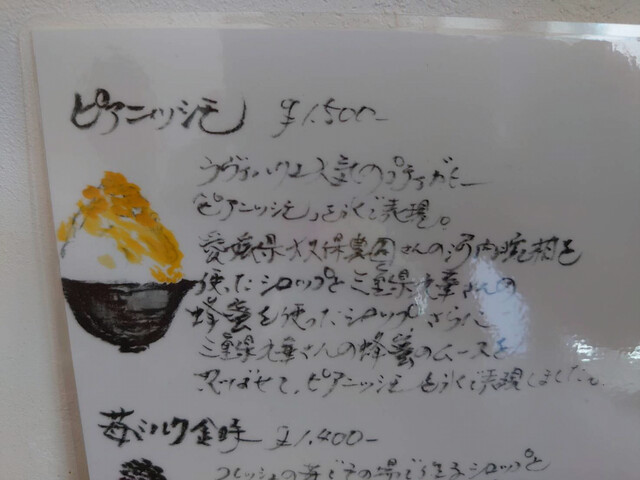 ピアニッシモ ¥1,500-
ラヴィハウス人気のプティガトー
ピアニッシモ」を氷で表現。
愛媛県大久保農園さんの河内晩柑を
使ったシロップと三重県光華さんの
蜂蜜を使ったシロップ、さらに
三重県光華さんの蜂蜜のムースを
忍ばせて、ピアニッシモを氷で表現しました。
苺ミルク金時 ¥1,400-
フレッシュの苺でその場で作るシロップと